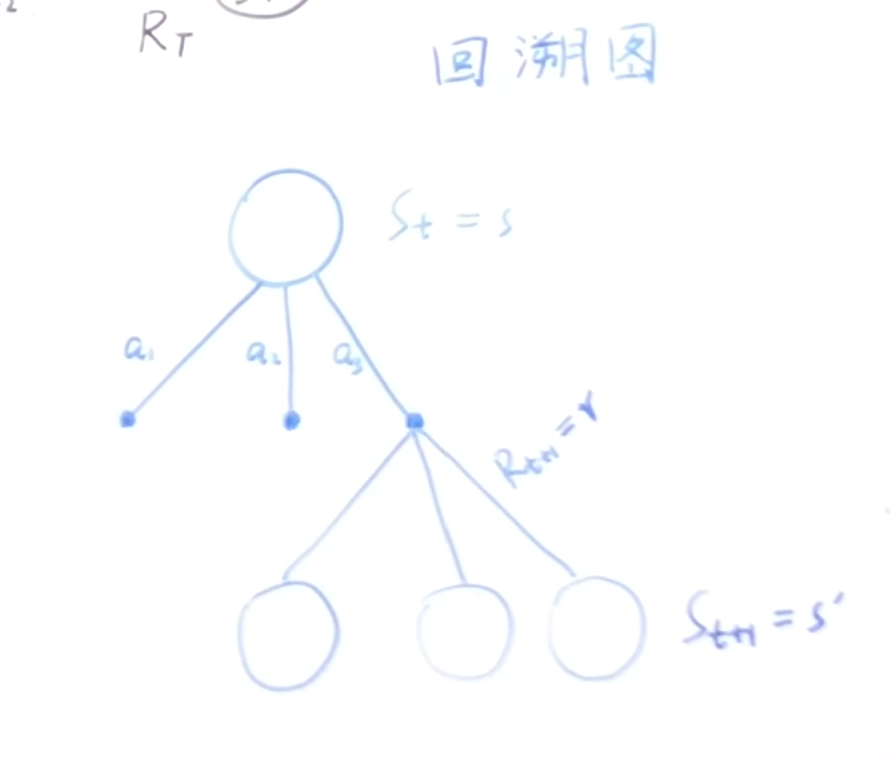 R_T
回溯图
S_t = s
a_1 a_2 a_3
R_{t+1} = r
S_{t+1} = s'